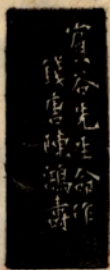 賓谷先生命作
錢唐陳鴻壽